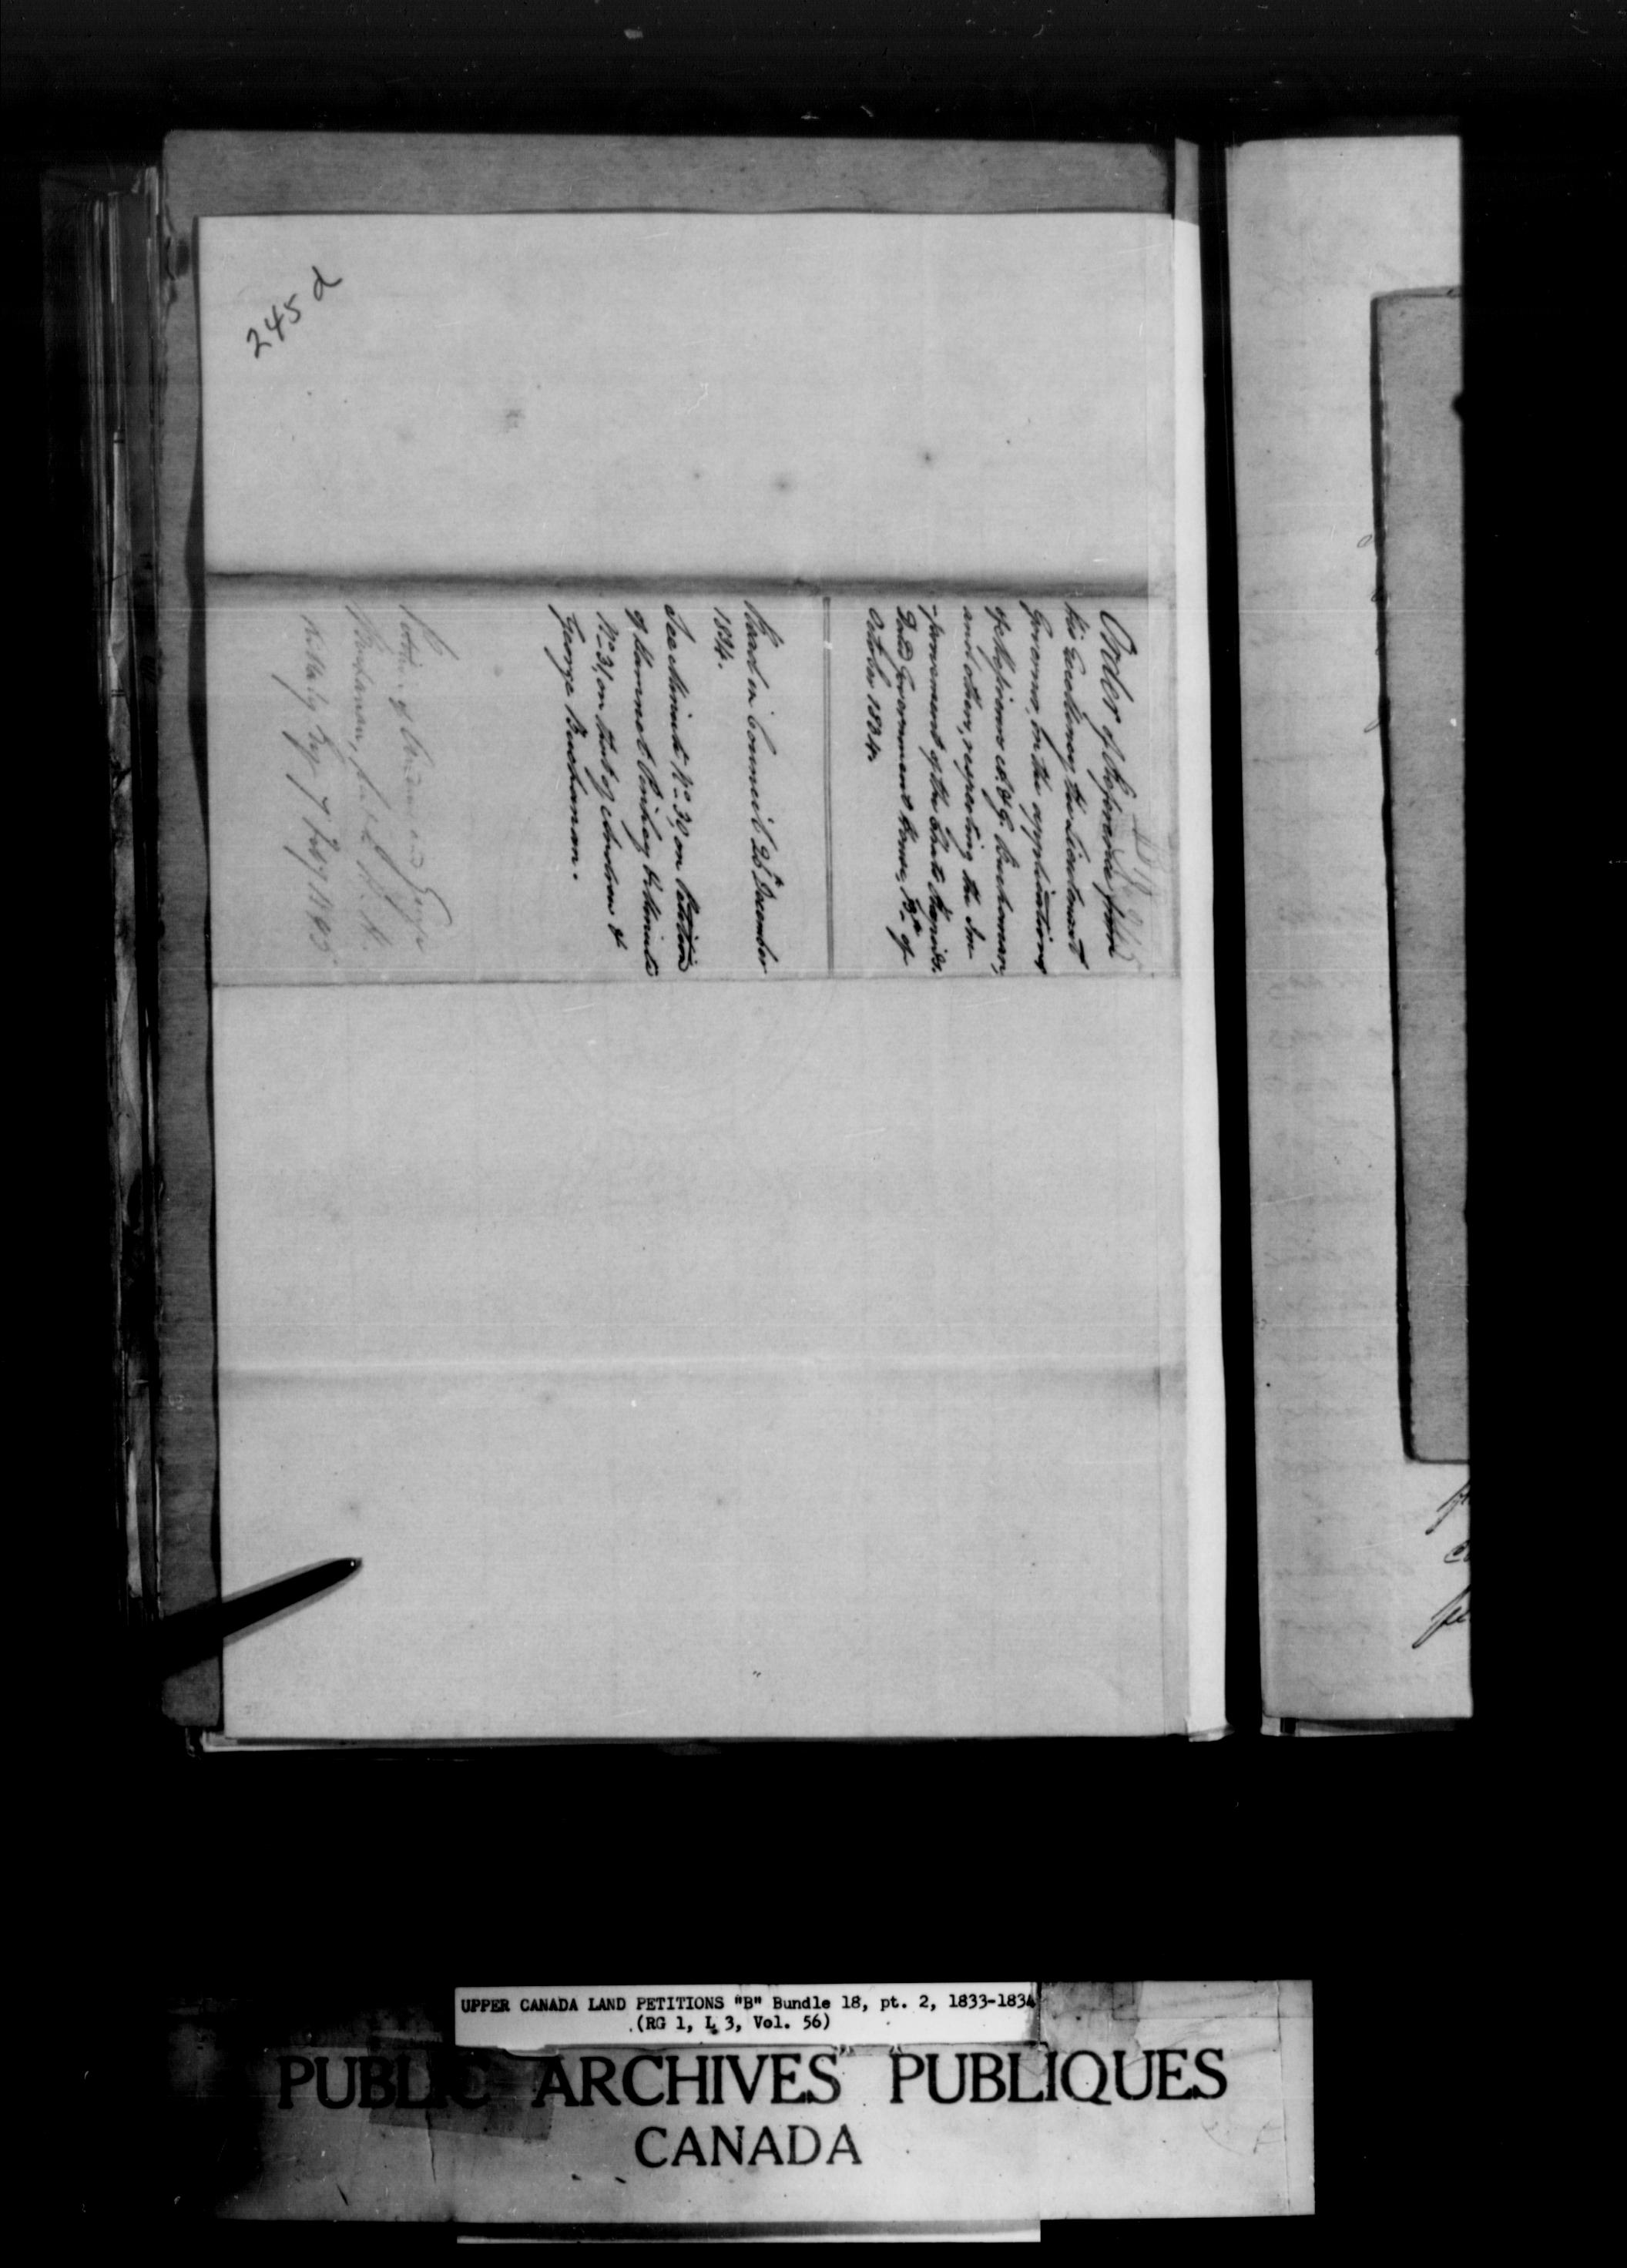 245 d
B 18 245
Order of Reference from
his Excellency the Lieutenant
Governor, on the applications
of Messieurs A. & G. Buchanan,
and others, respecting the Im-
-provement of the Chats Rapids.
Dated Government House, of
October 1834.
Read in Council 26th December
1834.
See Minute No. 30 on Petition
of Hamnet Pinhey & Minute
No. 31, on that of Andrew &
George Buchanan.
Petition of Andrew and George
Buchanan,
7
UPPER CANADA LAND PETITIONS "B" Bundle 18, pt. 2, 1833-1834
(RG 1, L 3, Vol. 56)
PUBLIC ARCHIVES PUBLIQUES
CANADA